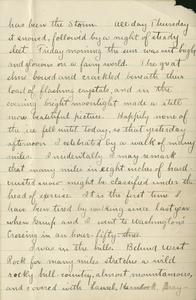 has been the storm. All day Thursday
it snowed, followed by a night of steady
sleet. Friday morning the sun rose bright
and glorious on a fairy world. The great
elms bowed and crackled beneath their
load of flashing crystals, and in the
evening bright moonlight made a still
more beautiful picture. Happily none of
the ice fell until today, so that yesterday
afternoon I celebrated by a walk of
miles. Incidentally I may remark
that many miles in eight inches of hard
crusted snow might be classified under the
head of exercise. It is the first time I
have been tired by walking since last year
when and I went to Washington's
Crossing in an hour fifty-three.
I was in the hills. Behind West
Rock for many miles stretches a wild
rocky hill-country, almost mountainous
and covered with laurel, hemlock,